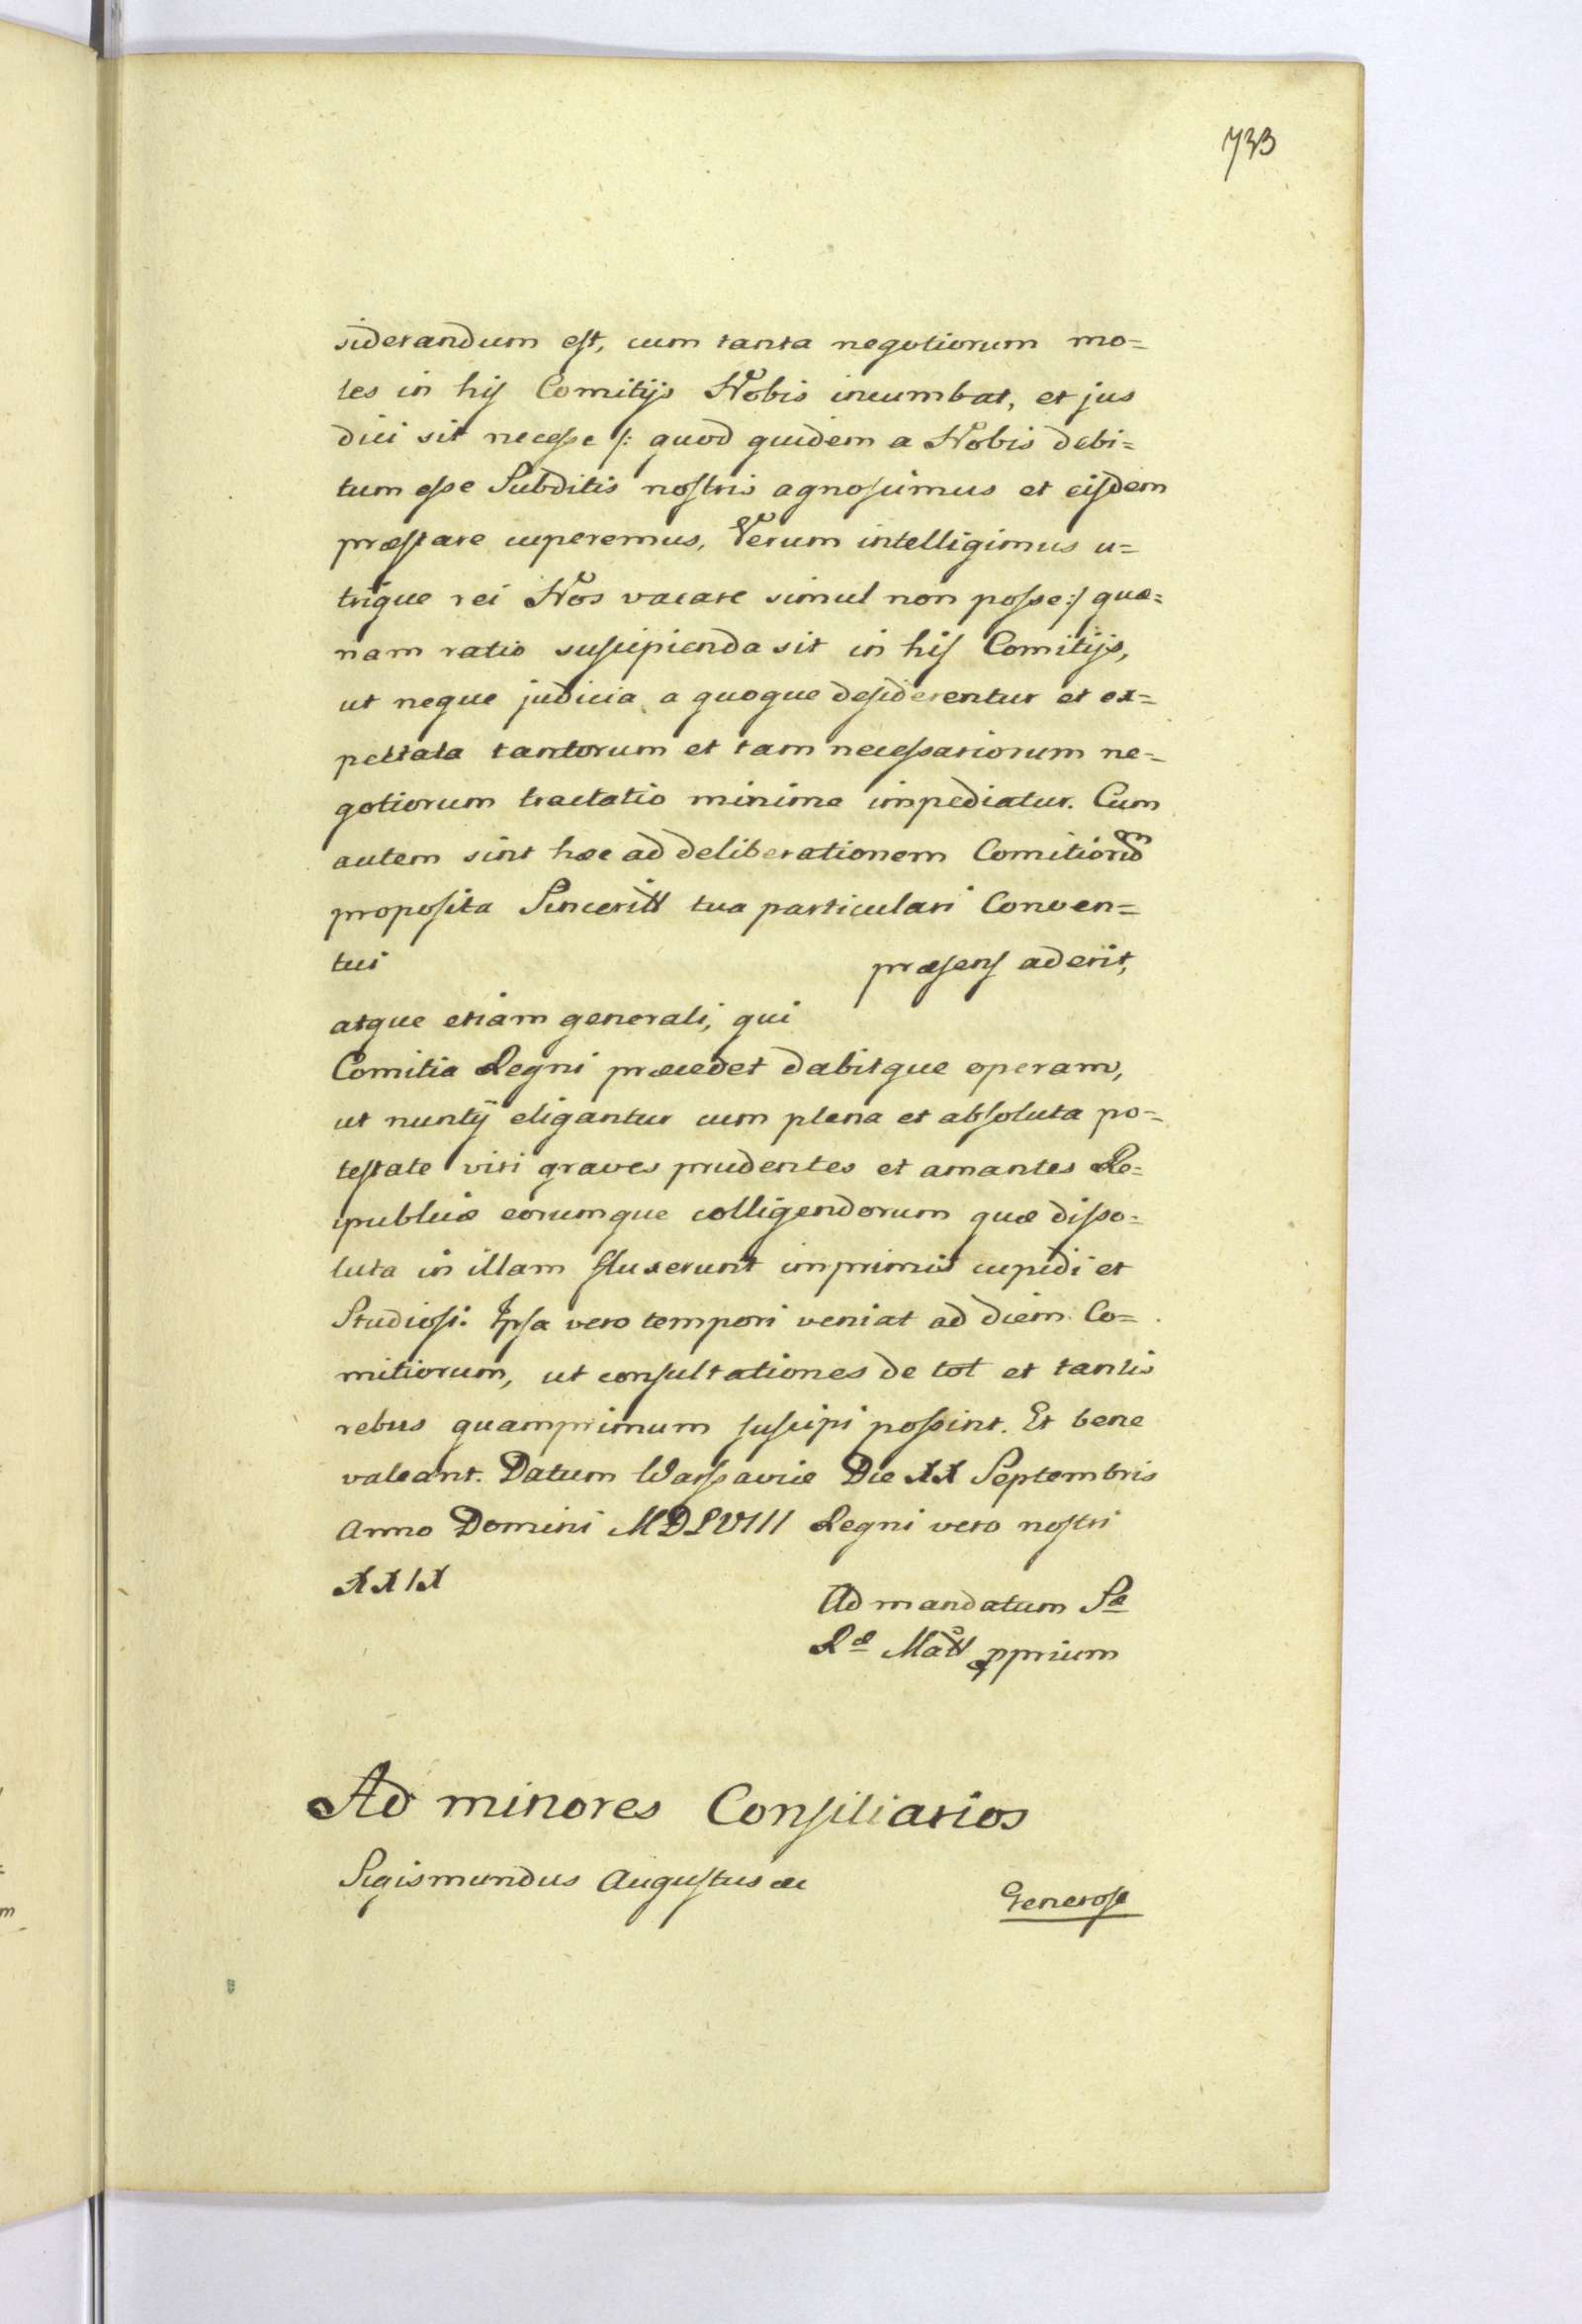 733
siderandum est, cum tanta negotiorum mo=
les in his Comitijs Nobis incumbat, et jus
dici sit necesse /: quod quidem a Nobis debi=
tum esse Subditis nostris agnoscimus et eisdem
præstare cuperemus, Verum intelligimus u=
trique rei Nos vacare simul non posse :/ quæ=
nam ratio suscipienda sit in his Comitijs,
ut neque judicia a quoque desiderentur et ex=
pettata tantorum et tam necessariorum ne=
gotiorum tractatio minime impediatur. Cum
autem sint hæc ad deliberationem Comitiorum
proposita Sinceritt tua particulari Conven=
tui præsens aderit,
atque etiam generali, qui
Comitia Regni præcedet dabitque operam,
ut nuntij eligantur cum plena et absoluta po=
testate viri graves prudentes et amantes Re=
ipublicæ eorumque colligendorum quæ disso=
luta in illam fluxerunt imprimis cupidi et
Studiosi. Ipsa vero tempori veniat ad diem Co=
mitiorum, ut consultationes de tot et tantis
rebus quamprimum suscipi possint. Et bene
valeant. Datum Warssaviæ Die XX Septembris
Anno Domini MDLVIII Regni vero nostri
XXIX
Ad mandatum Sæ
Ræ Matt pprium
Ad minores Consiliarios
Sigismundus Augustus &c
Generose